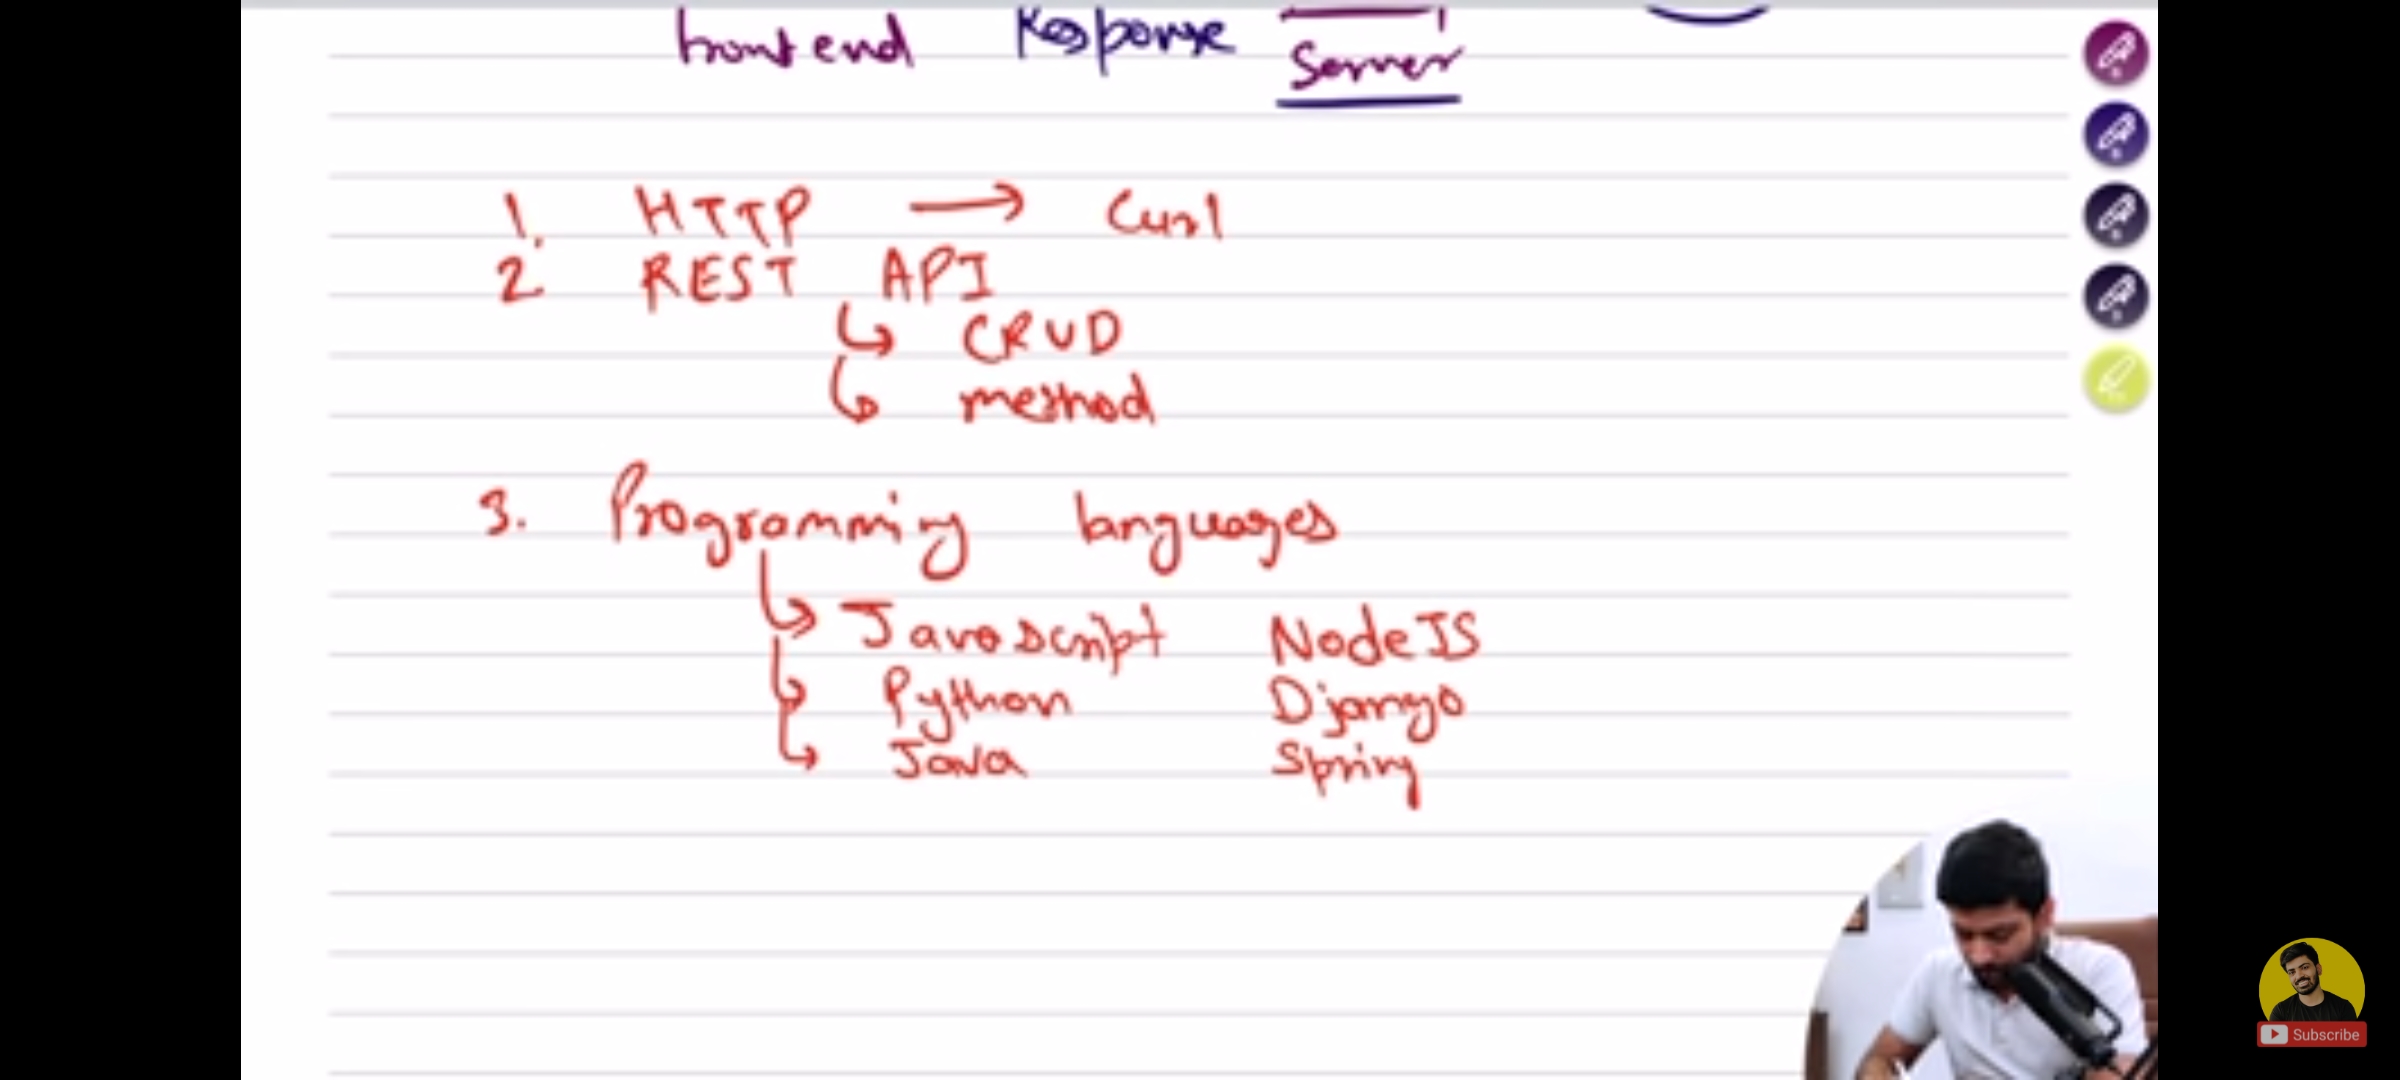 frontend Response Server
1. HTTP → Curl
2 REST API
↳ CRUD
↳ method
3. Programming languages
↳ Javascript NodeJS
↳ Python Django
↳ Java Spring
Subscribe